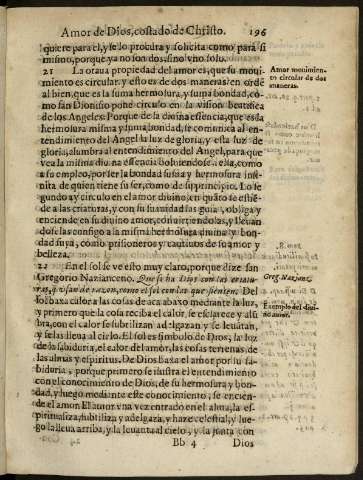 Amor de Dios, costado de Christo. 196
quiere para el, y se lo procura y solicita como para si
mismo, porque ya no son dos, sino vno solo.
21 La otaua propiedad del amor es, que su moui-
miento es circular: y esto es de dos maneras: en ordē
al bien, que es la suma hermosura, y suma bondad, co-
mo san Dionisio pone circulo en la vision beatifica
de los Angeles: Porque de la diuina essencia, que es la
hermosura misma y suma bondad, se comunica al en-
tendimiento del Angel la luz de gloria, y esta luz de
gloria, alumbra al entendimiento del Angel, para que
vea la misma diuina essencia boluiendose a ella, como
a su empleo, por ser la bondad suma y hermosura infi-
nita de quien tiene su ser, como de su principio. Lo se
gundo ay circulo en el amor diuino, en quāto se estiē-
de a las criaturas, y con su suauidad las guia, obliga y
enciende en su diuino amor, conuirtiendolas, y lleuan
dose las consigo a la misma hermosura diuina y bon-
dad suya, como prisioneros y cautiuos de su amor y
belleza.
22 En el sol se vè esto muy claro, porque dize san
Gregorio Nazianceno. Que si ha Dios con las criatu-
ras, q̄ vsan de razon, como el sol con las que sienten. Del
sol baxa calor a las cosas de aca abaxo mediante la luz,
y primero que la cosa reciba el calor, se esclarece y alū
bra, con el calor se subtilizan adelgazan y se leuātan,
y se las lleua al cielo. El sol es simbolo de Dios, la luz
de la sabiduria, el calor del amor, las cosas terrenas, de
las almas y espiritus. De Dios baxa el amor por su sa-
biduria, porque primero se ilustra el entendimiento
con el conocimiento de Dios, de su hermosura y bon-
dad, y luego mediante este conocimiento, se encien-
de el amor. El amor vna vez entrado en el alma, la es-
piritualiza, subtiliza y adelgaza, y haze celestial, y lue-
go la lleua arriba, y la leuanta al cielo, y la junta con
Bb 4 Dios
Amor mouimien-
to circular de dos
maneras.
Greg. Nazianc.
Exemplo del diui-
no amor.